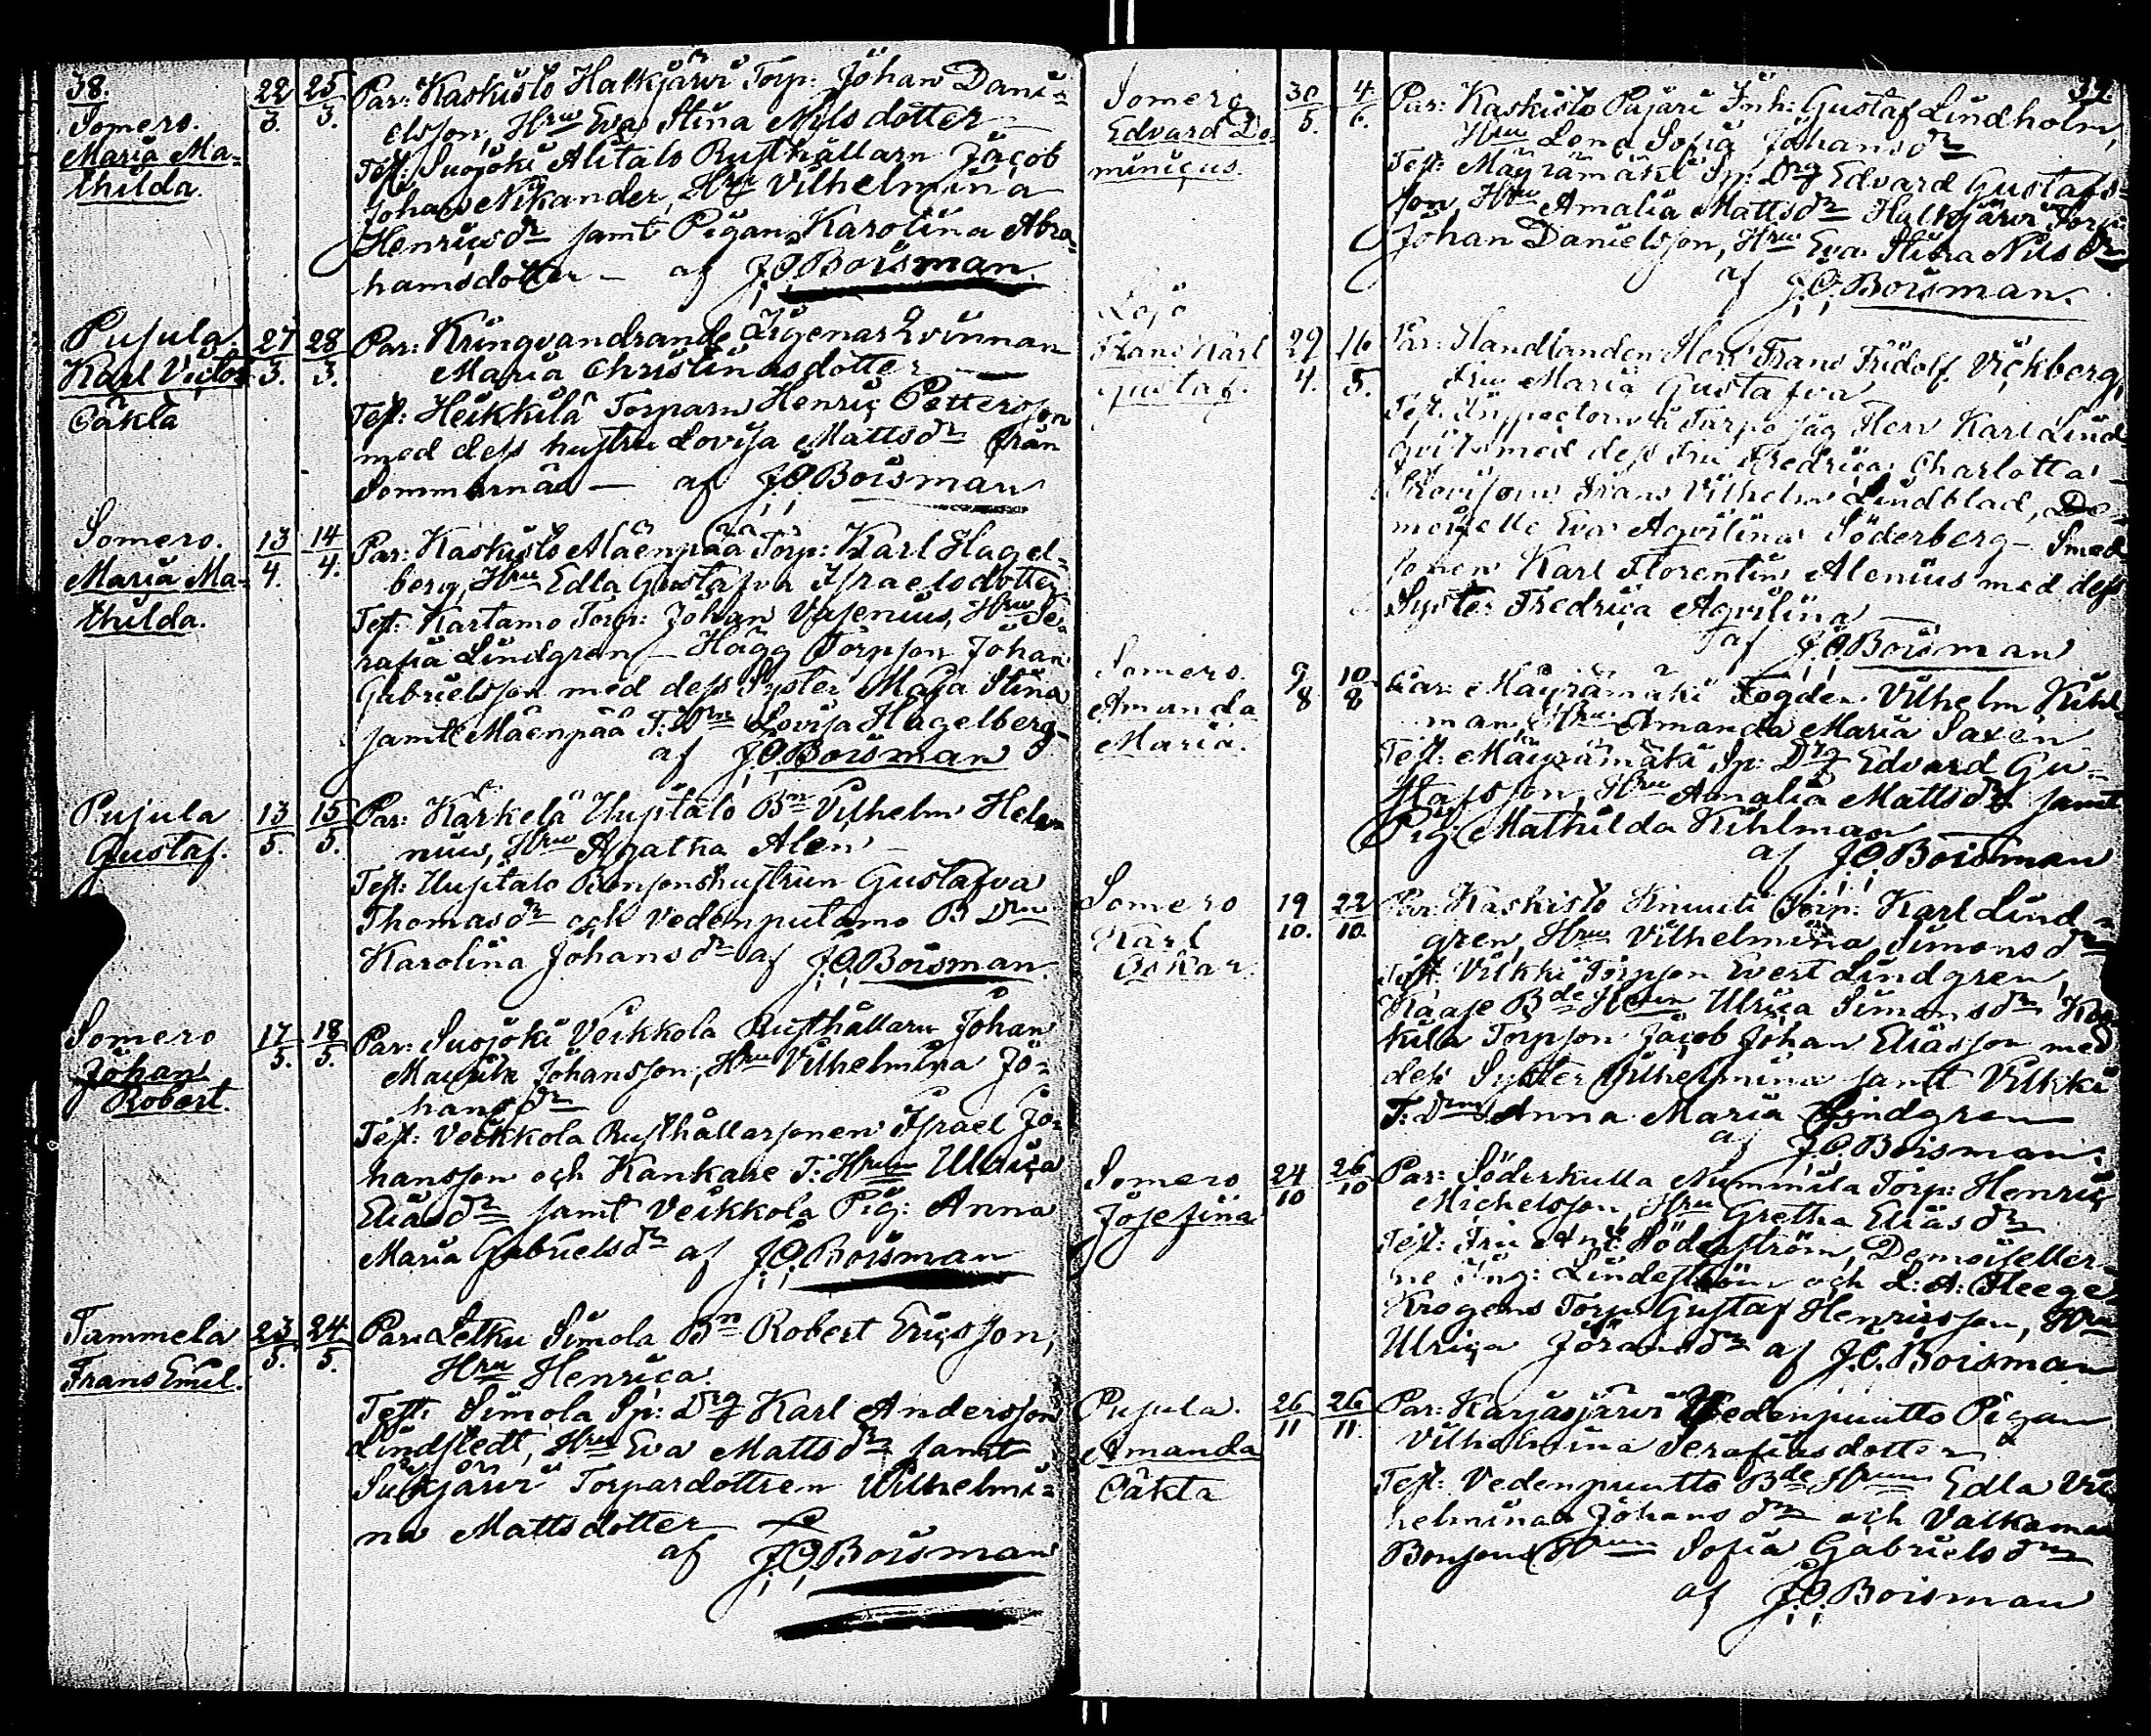 38.
Somero.
Maria Ma-
thilda.
22/3. 25/3.
Par: Kaskisto Halkjärvi Torp: Johan Dani-
elsson, Hru Eva Stina Nilsdotter
Test: Suojoki Alitalo Rusthållarn Jacob
Johan Nikander, Hru Vilhelmina
Henricsdr samt Pigan Karolina Abra-
hamsdotter — af J.O.Boisman.
Pusula.
Karl Victor
Oäkta
27/3. 28/3.
Par: Kringvandrande Zigenar Qvinnan
Maria Christinasdotter
Test: Heikkilä Torparn Henric Pettersson
med dess hustru Lovisa Mattsdr från
Sommarnäs — af J.O.Boisman
Somero.
Maria Ma-
thilda.
13/4. 14/4.
Par: Kaskisto Mäenpää Torp: Karl Hagel-
berg, Hru Edla Gustafva Israelsdotter
Test: Kartamo Torp: Johan Vasenius, Hru Se-
rafia Lindgren — Hägg Torpson Johan
Gabrielsson med dess Syster Maja Stina
samt Mäenpää T: Drn Lovisa Hagelberg —
af J.O.Boisman
Pusula
Gustaf.
13/5. 15/5.
Par: Kärkelä Uusitalo Bn Vilhelm Hele-
nius, Hru Agatha Alen
Test: Uusitalo Bonsonshustrun Gustafva
Thomasdr och Vedenputamo B Drn
Karolina Johansdr af J.O.Boisman.
Somero
Johan
Robert.
17/5. 18/5.
Par: Suojoki Veikkola Rusthållarn Johan
Johansson, Hru Vilhelmina Jo-
hansdr
Test: Veikkola Rusthållarsonen Israel Jo-
hansson och Kankare T: Hrun Ulrica
Eliasdr samt Veikkola Pig: Anna
Maria Gabrielsdr af J.O.Boisman
Tammela
Frans Emil.
23/5. 24/5.
Par: Letku Simola Bn Robert Ericsson,
Hru Henrica.
Test: Simola Sp: Drg Karl Andersson
Lindstedt, Hru Eva Mattsdr samt
Suojärvi Torpardottren Vilhelmi-
na Mattsdotter
af J.O.Boisman
39.
Somero
Edvard Do-
minicus.
30/5. 4/6.
Par: Kaskisto Pajari Inh: Gustaf Lindholm,
Hru Lena Sofia Johansdr
Test: Mäyrämäki Sp: Drg Edvard Gustafs-
son, Hru Amalia Mattsdr Halkjärvi Torp:
Johan Danielsson, Hru Eva Stina Nilsdr
af J.O.Boisman.
Lojo
Frans Karl
Gustaf.
29/4. 16/5.
Par: Handlanden Herr Frans Fridolf Vickberg,
Fru Maria Gustafva
Test: Inspectorn å Torpo såg Herr Karl Lind
qvist med dess Fru Fredrica Charlotta
Provisorn Frans Vilhelm Lindblad, De-
moiselle Eva Aqvilina Söderberg — Smed
sonen Karl Florentin Alenius med dess
Syster Fredrica Aqvilina
af J.O.Boisman
Somero.
Amanda
Maria.
9/8 10/8
Par: Mäyrämäki Fogden Vilhelm Kihl-
man, Hru Amanda Maria Saxen
Test: Mäyrämäki Sp: Drg Edvard Gu-
stafsson, Hru Amalia Mattsdr samt
Pig: Mathilda Kihlman
af J.O.Boisman
Somero
Karl
Oskar.
19/10. 22/10.
Par: Kaskisto Knuuti Torp: Karl Lind-
gren, Hru Vilhelmina Simonsdr
Test: Vilkki Torpson Evert Lindgren,
Bde Hrun Ulrica Simonsdr
Torpson Jacob Johan Eliasson med
dess Syster Vilhelmina samt Vilkki
T: Drn Anna Maria Lindgren
af J.O.Boisman.
Somero
Josefina
24/10 26/10
Par: Söderkulla Nummila Torp: Henric
Michelsson, Hru Gretha Eliasdr
Test: Fru Söderström, Demoiseller-
ne Ing: Lindeström och L: A: Fleege
Krogens Torp: Gustaf Henricsson, Hru
Ulrica Göransdr af J.O.Boisman
Pusula.
Amanda
Oäkta
26/11 26/11.
Par: Karjasjärvi Vedenpuutto Pigan
Vilhelmina Serafiasdotter
Test: Vedenpuutto Bde Hrun Edla Vil
helmina Johansdr och Valkama
Bonsons Hrun Sofia Gabrielsdr
af J.O.Boisman